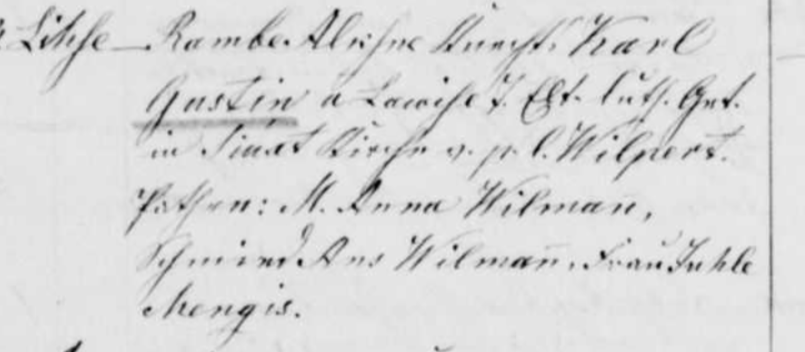 Lihse — Rambe. Alrihsne Knecht. Karl
Gustin u. Lawihse T. Elt. luth. Get.
in Siuxt Kirche v. p. l. Wilpert.
Pathen: M. Anna Wilman̄,
Schmied Ans Wilman̄, Frau Juhle
Mengis.